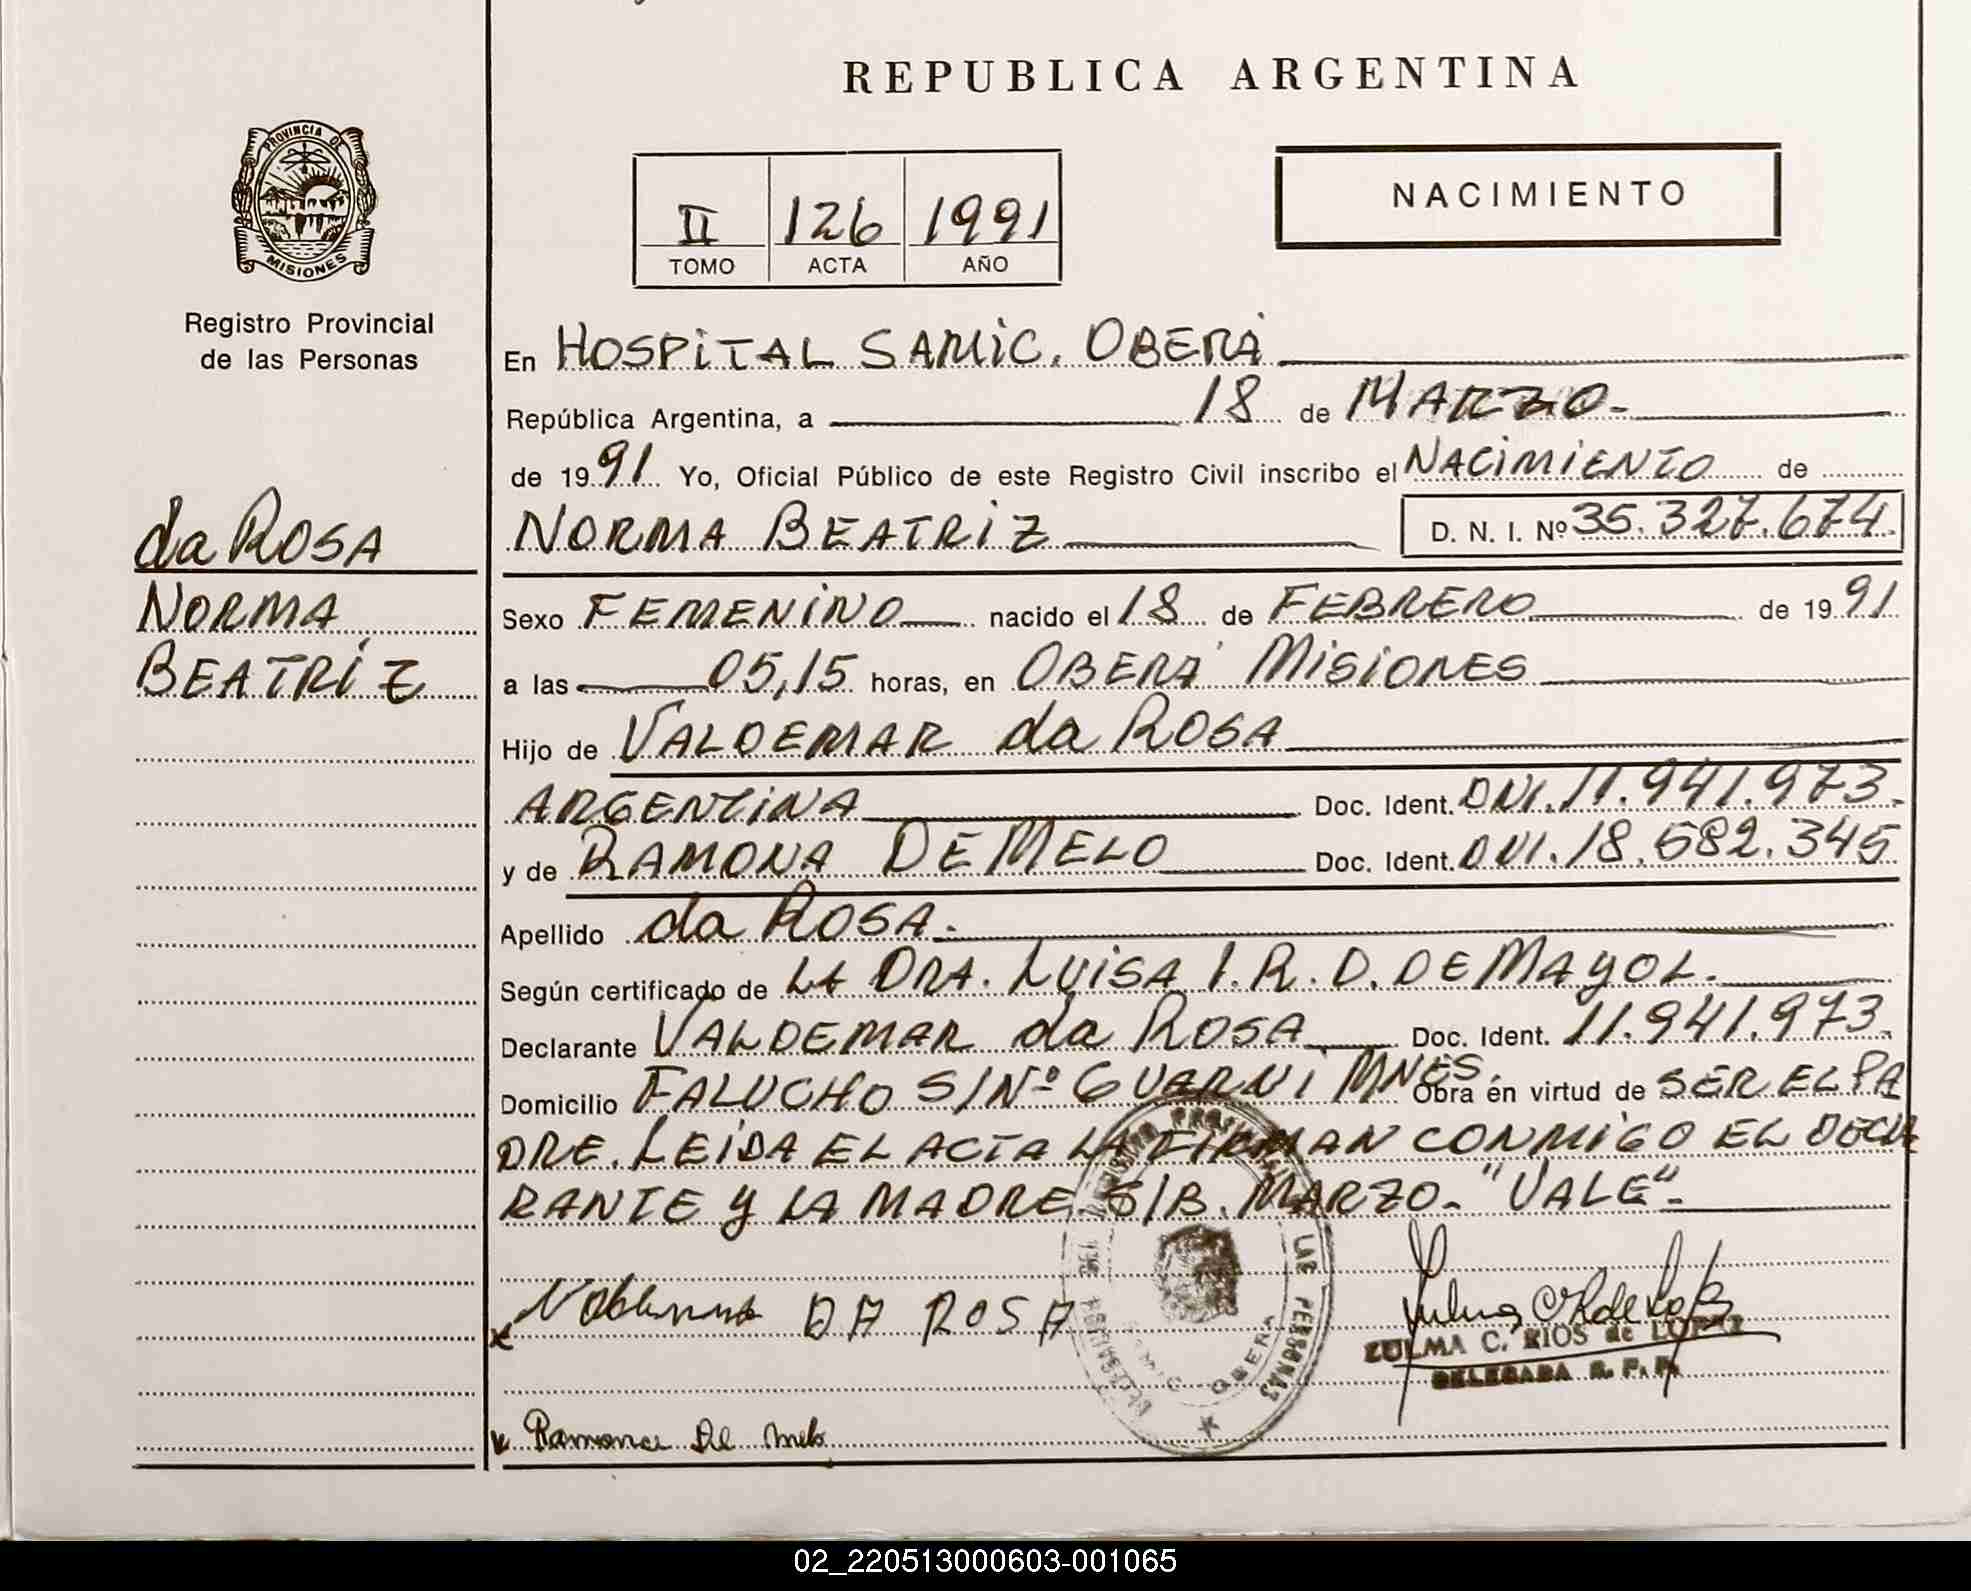 REPUBLICA ARGENTINA
PROVINCIA DE
MISIONES
Registro Provincial
de las Personas
II 126 1991
TOMO ACTA AÑO
NACIMIENTO
En HOSPITAL SAMIC. OBERÁ
República Argentina, a 18 de MARZO.
de 1991 Yo, Oficial Público de este Registro Civil inscribo el NACIMIENTO de
NORMA BEATRIZ D. N. I. Nº 35.327.674.
da ROSA
NORMA
BEATRIZ
Sexo FEMENINO nacido el 18 de FEBRERO de 1991
a las 05,15 horas, en OBERÁ MISIONES
Hijo de VALDEMAR da ROSA
ARGENTINA Doc. Ident. DNI. 11.941.973.
y de RAMONA DE MELO Doc. Ident. DNI. 18.682.345
Apellido da ROSA.
Según certificado de LA DRA. LUISA I. R. D. DE MAYOL.
Declarante VALDEMAR da ROSA Doc. Ident. 11.941.973.
Domicilio FALUCHO S/Nº GUARNI MNES. Obra en virtud de SER EL PA
DRE. LEIDA EL ACTA LA FIRMAN CONMIGO EL DECLA
RANTE Y LA MADRE S/B. MARZO. "VALE".
DA ROSA
LAS PERSONAS
OBERA
ZULMA C. RIOS de LOPEZ
DELEGADA R. P. P.
Ramona De Melo
02_220513000603-001065